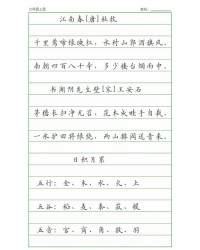 六年级上册
江南春[唐]杜牧
千里莺啼绿映红，水村山郭酒旗风。
南朝四百八十寺，多少楼台烟雨中。
书湖阴先生壁[宋]王安石
茅檐长扫净无苔，花木成畦手自栽。
一水护田将绿绕，两山排闼送青来。
日积月累
五行：金、木、水、火、土
五谷：稻、麦、黍、菽、稷
五音：宫、商、角、徵、羽